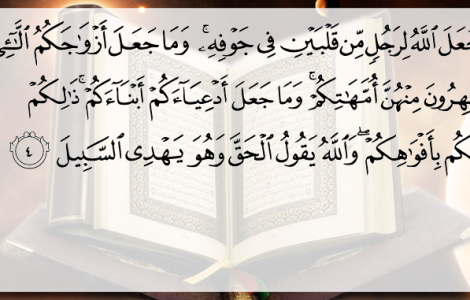 جَعَلَ ٱللَّهُ لِرَجُلٍ مِّن قَلْبَيْنِ فِى جَوْفِهِۦ ۚ وَمَا جَعَلَ أَزْوَٰجَكُمُ ٱلَّـٰٓـِٔى
هِرُونَ مِنْهُنَّ أُمَّهَـٰتِكُمْ ۚ وَمَا جَعَلَ أَدْعِيَآءَكُمْ أَبْنَآءَكُمْ ۚ ذَٰلِكُمْ
كُم بِأَفْوَٰهِكُمْ ۖ وَٱللَّهُ يَقُولُ ٱلْحَقَّ وَهُوَ يَهْدِى ٱلسَّبِيلَ ٤